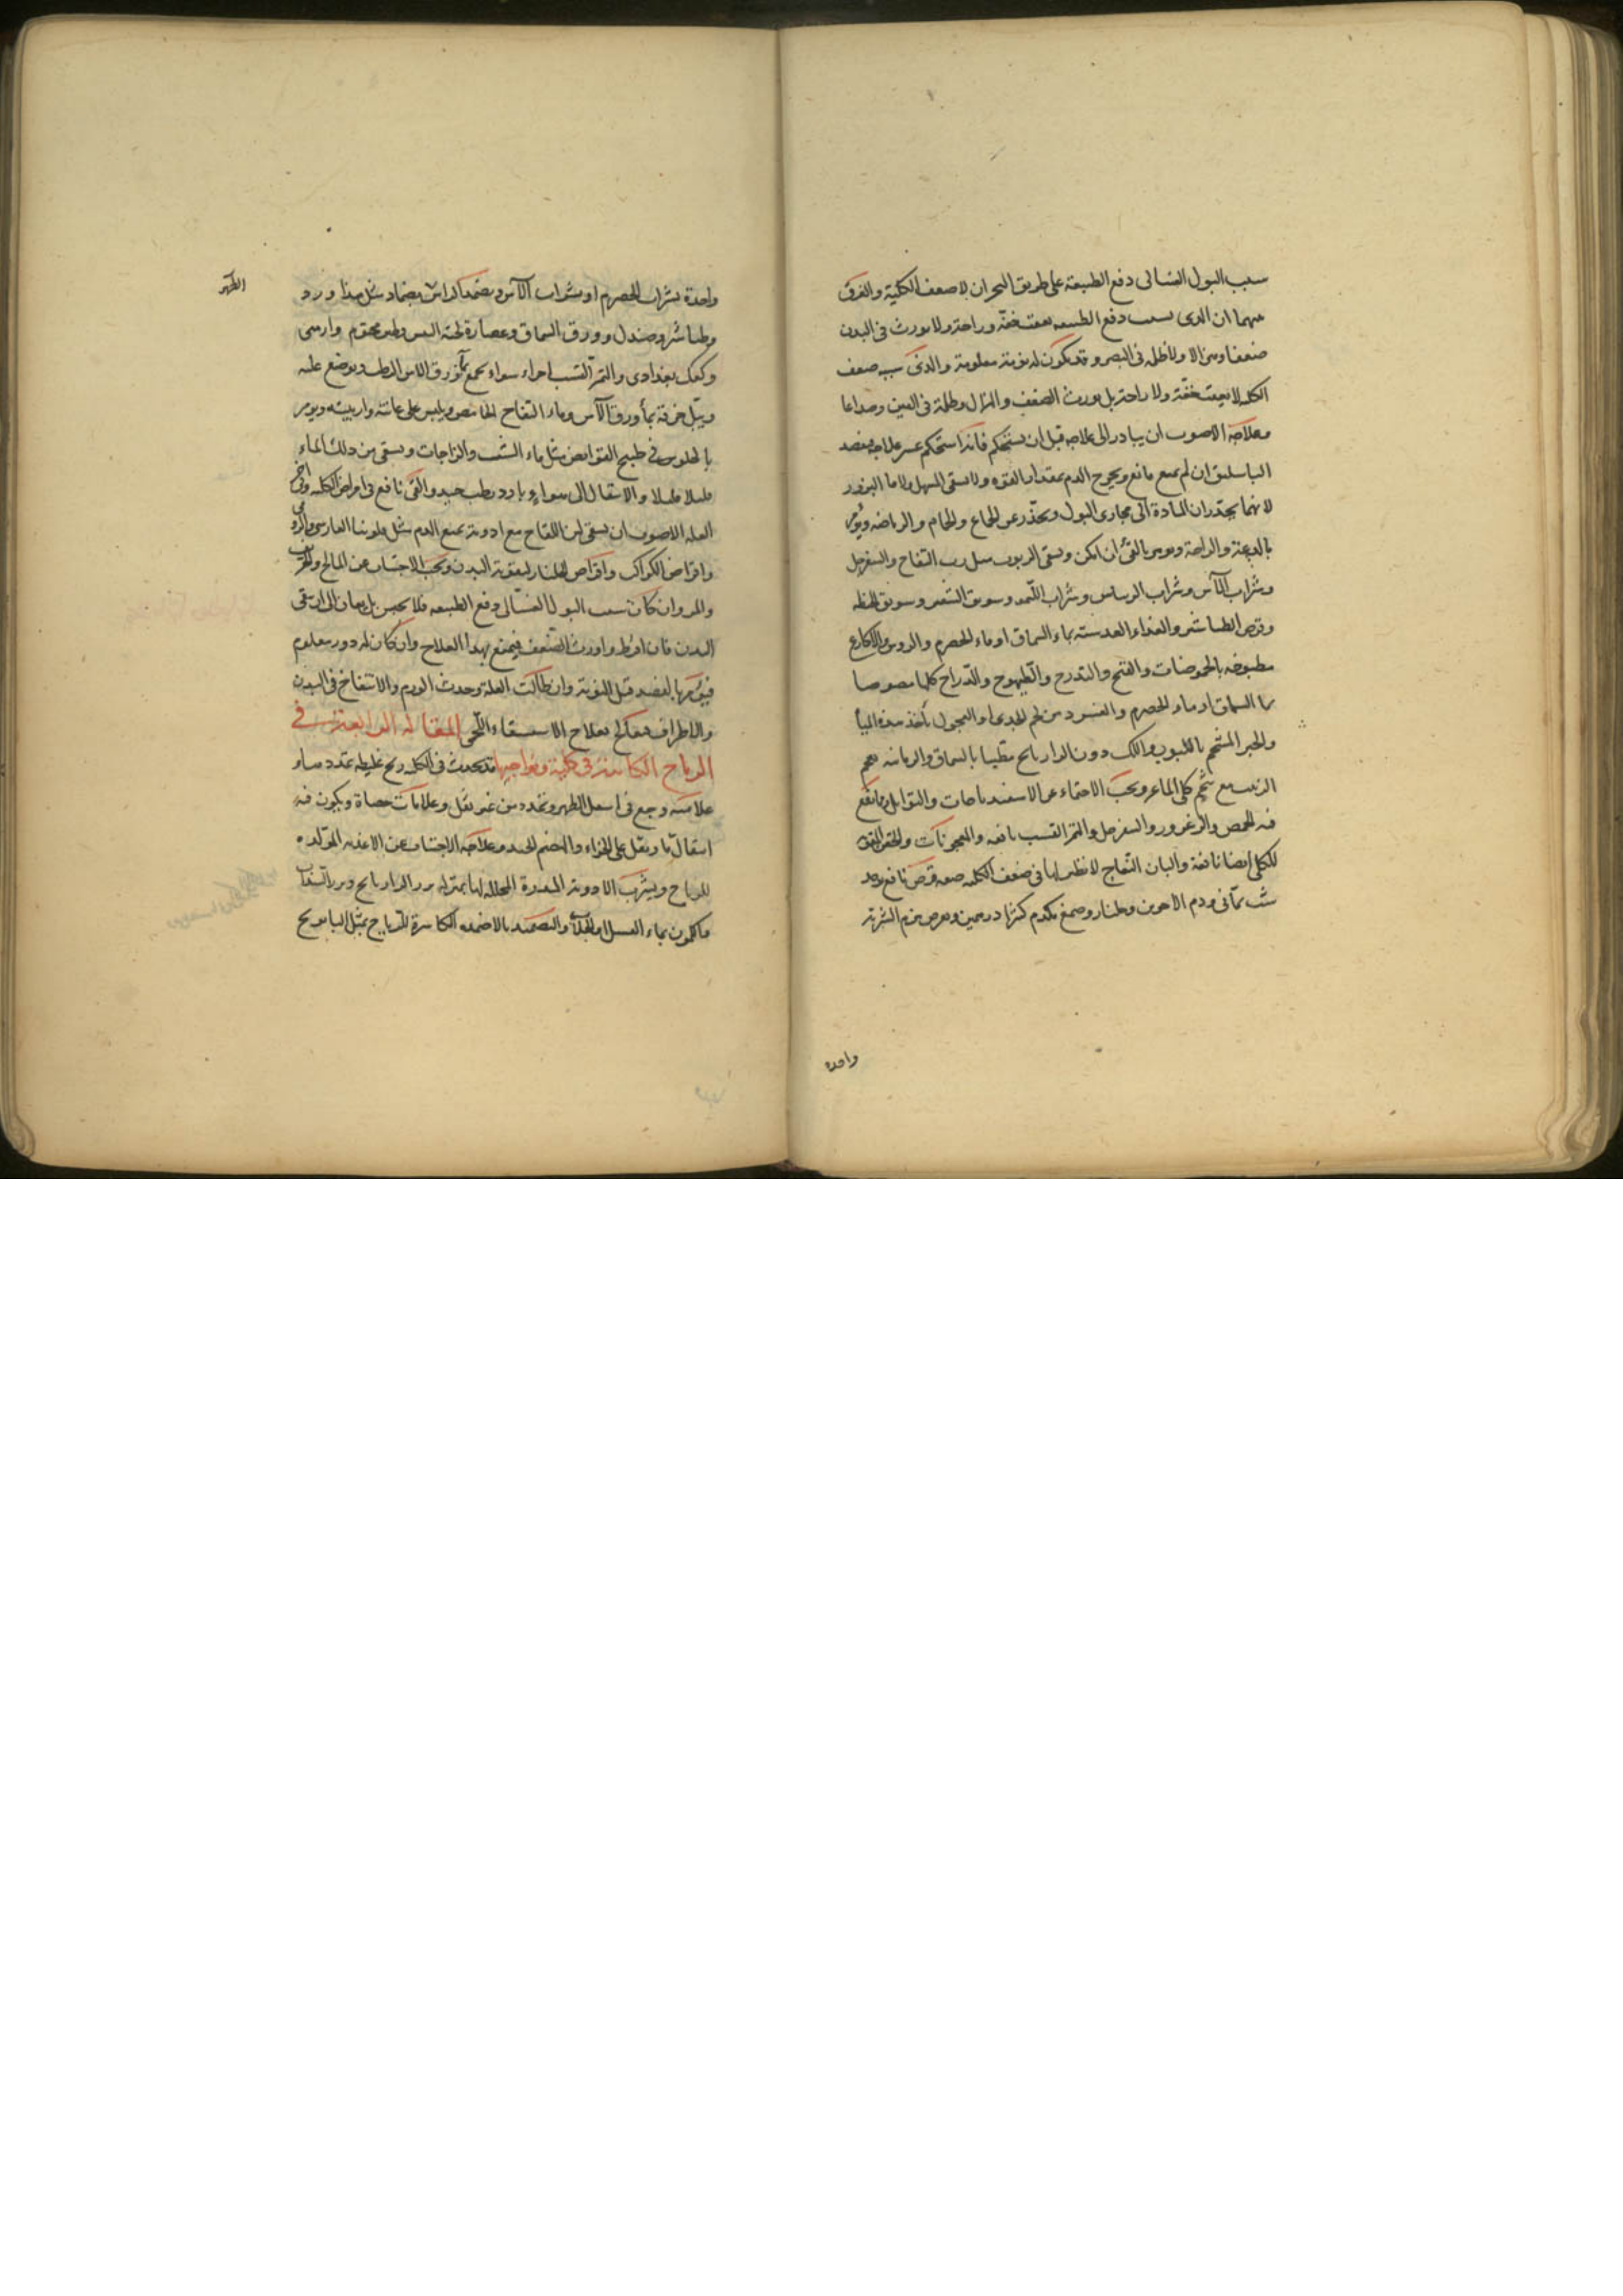 سبب البول الغسالى دفع الطبيعة على طريق البحران لا صعف الكلية والفرق
بينهما ان الذى بسبب دفع الطبيعه يعقبه خفة وراحة ولا يورث فى البدن
ضعفا وهزالا ولا ظلمه فى البصر وقد يكون له نوبة معلومة والذى سببه صعف
الكليه لا يعقبه خفة ولا راحة بل يورث الضعف والهزال وظلمة فى العين وصداعا
وعلاجه الاصوب ان يبادر الى علاجه قبل ان يستحكم فانه اذا استحكم عسر علاجه بفصد
الباسليق ان لم يمنع مانع ويخرج الدم بمقدار القوه ولا يسقى المسهل ولا ما البزور
لانهما يحدران المادة الى مجارى البول ويحذر عن الجماع والحمام والرياضه ويؤمر
بالدعة والراحة ويومر بالقئ ان امكن ويسقى الربوب مثل رب التفاح والسفرجل
وشراب الآس وشراب الريباس وشراب وسويق الشعير وسويق الحنطه
وقرص الطباشير والغذاء العدسية بماء السماق او ماء الحصرم والروس والاكارع
مطبوخه بالحموضات والقبج والتدرج والطيهوج والدراج كلها مصوصا
بماء السماق او ماء الحصرم من لحم الجدى او العجول
والخبز دون الدارى مطيبا بالسماق والرمانيه
الزبيب مع شحم كلى الماعز ويجب الاحتماء عن الاسفيدباجات والتوابل
فيه الحمص والزعرور والسفرجل والتمر القسب نافعه والمعجونات والحقن
للكلى ايضا نافعة والبان النعاج لا نظير لها فى ضعف الكليه صفه قرص نافع
شب يمانى ودم الاخوين وجلنار وصمغ كثيرا درهمين ويقرص الشربة
واحده
واحدة بشراب الحصرم او بشراب الآس ويضمد بضماد مثل هذا ورد
وطباشير وصندل وورق السماق وعصارة لحية التيس وطين مختوم وارمنى
وكعك بغدادى والتمر القسب اجزاء سواء يجمع بماء ورق الاس الرطب ويوضع عليه
ويبل خرقة بماء ورق الآس وماء التفاح الحامض ويلبس على عانته واربيته ويومر
بالجلوس فى طبيخ القوابض مثل ماء الشب والزاجات ويسقى من ذلك الماء
قليلا قليلا والانتقال الى هواء بارد رطب جيد والقئ نافع فى امراض الكليه وفى اخر
العله الاصوب ان يسقى لبن اللقاح مع ادوية تمنع الدم مثل فلونيا الفارسى والرومى
واقراص الكواكب واقراص الجلنار لتقوية البدن ويجب الاجتناب عن المالح والحريف
والمر وان كان سبب البول الغسالى دفع الطبيعه فلا يحبس بل يعان الى ان ينقى
البدن فان افرط واورث الضعف فيمنع بهذا العلاج وان كان له دور معلوم
فيؤمر بالفصد قبل النوبة وان طالت العلة وحدث الورم والانتفاخ فى البدن
والاطراف فعالج بعلاج الاستسقاء اللحمى المقالة الرابعة فى
الرياح الكائنة فى كلية ونواحيها قد يحدث فى الكليه ريح غليظه تمدد
علامته وجع فى اسفل الظهر وتمدد من غير ثقل وعلامات حصاة ويكون فيه
انتقال ما ويقل على الخواء والهضم الجيد وعلاجه الاجتناب عن الاغذيه المولده
للرياح ويشرب الادوية المدرة المحلله لها بمنزله بزر الرازيانج وبزر السذاب
والكمون بماء العسل او الجلاب والتضميد بالاضمده الكاسرة للرياح بمثل البابونج
الظهر